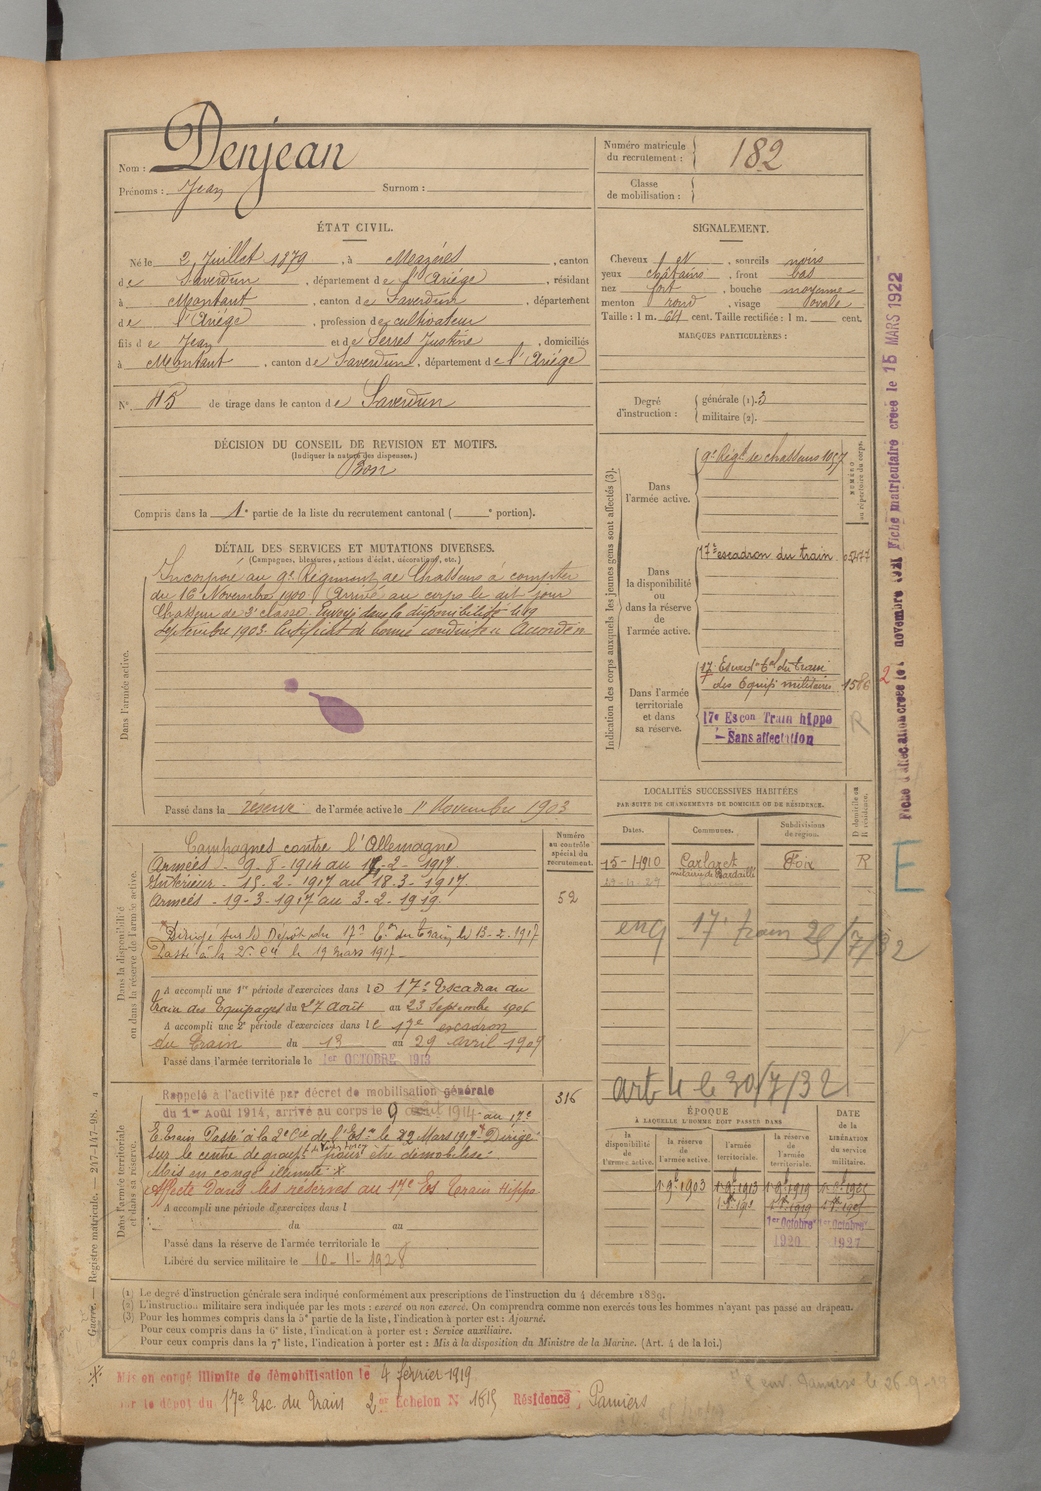 Nom : Denjean
Prénoms : Jean Surnom :
Numéro matricule du recrutement : 182
Classe de mobilisation :
ÉTAT CIVIL.
Né le 2 Juillet 1879, à Mazères, canton
de Saverdun, département de l'Ariège, résidant
à Montaut, canton de Saverdun, département
de l'Ariège, profession de cultivateur
fils de Jean et de Serres Justine, domiciliés
à Montaut, canton de Saverdun, département de l'Ariège
N° 45 de tirage dans le canton de Saverdun
DÉCISION DU CONSEIL DE REVISION ET MOTIFS.
(Indiquer la nature des dispenses.)
Bon
Compris dans la 1e partie de la liste du recrutement cantonal ( e portion).
SIGNALEMENT.
Cheveux , sourcils noirs
yeux châtains , front bas
nez fort , bouche moyenne
menton rond , visage ovale
Taille : 1 m. 64 cent. Taille rectifiée : 1 m. cent.
MARQUES PARTICULIÈRES :
Degré d'instruction : générale (1). 3
militaire (2).
DÉTAIL DES SERVICES ET MUTATIONS DIVERSES.
(Campagnes, blessures, actions d'éclat, décorations, etc.)
Dans l'armée active.
Incorporé au 9e Régiment de Chasseurs à compter
du 16 Novembre 1900. Arrivé au corps le dit jour
Chasseur de 2e classe. Envoyé dans la disponibilité le 19
Septembre 1903. Certificat de bonne conduite Accordé
Passé dans la réserve de l'armée active le 1 Novembre 1903
Indication des corps auxquels les jeunes gens sont affectés (3).
NUMÉRO au répertoire du corps.
Dans l'armée active.
9e Régt de chasseurs
Dans la disponibilité ou dans la réserve de l'armée active.
17e escadron du train
Dans l'armée territoriale et dans sa réserve.
17 Escad. Tal du train
des Equip militaires
17e Escon Train hippo
Sans affectation
R
LOCALITÉS SUCCESSIVES HABITÉES
PAR SUITE DE CHANGEMENTS DE DOMICILE OU DE RÉSIDENCE.
Dates. Communes. Subdivisions de région. D domicile ou R résidence.
15-1-1910 Carlaret Foix R
eng 17e train
art 4 le 30/7/32
Dans la disponibilité ou dans la réserve de l'armée active.
Numéro au contrôle spécial du recrutement.
52
Campagnes contre l'Allemagne
Armées - 9-8-1914 au 14-2-1917
Intérieur - 15-2-1917 au 18-3-1917.
Armées - 19-3-1917 au 3-2-1919.
Dirigé sur le Dépôt du 17e Eon du Train, le 15-2-1917
Passé à la 2e Cie le 19 mars 1917
A accompli une 1re période d'exercices dans le 17e Escadron du
train des Equipages du 27 août au 23 Septembre 1906
A accompli une 2e période d'exercices dans le 17e escadron
du train du 13 au 29 avril 1909
Passé dans l'armée territoriale le 1er OCTOBRE 1913
Dans l'armée territoriale et dans sa réserve.
316
Rappelé à l'activité par décret de mobilisation générale
du 1er Août 1914, arrivé au corps le 9 août 1914 au 17e
E. Train Passé à la 2e Cie de l'Eson le 22 Mars 1917 Dirigé
sur le centre de groupt de pour être démobilisé
Mis en congé illimité X
Affecté dans les réserves au 17e Es Train Hippo
A accompli une période d'exercices dans l
du au
Passé dans la réserve de l'armée territoriale le
Libéré du service militaire le 10-11-1928
ÉPOQUE
À LAQUELLE L'HOMME DOIT PASSER DANS
la disponibilité de l'armée active. la réserve de l'armée active. l'armée territoriale. la réserve de l'armée territoriale.
DATE DE LA LIBÉRATION du service militaire.
1er Octobre 1er Octobre
1920 1927
(1) Le degré d'instruction générale sera indiqué conformément aux prescriptions de l'instruction du 4 décembre 1889.
(2) L'instruction militaire sera indiquée par les mots : exercé ou non exercé. On comprendra comme non exercés tous les hommes n'ayant pas passé au drapeau.
(3) Pour les hommes compris dans la 5e partie de la liste, l'indication à porter est : Ajourné.
Pour ceux compris dans la 6e liste, l'indication à porter est : Service auxiliaire.
Pour ceux compris dans la 7e liste, l'indication à porter est : Mis à la disposition du Ministre de la Marine. (Art. 4 de la loi.)
Mis en congé illimité de démobilisation le 4 février 1919
le dépôt du 17e Esc. du Train 2e Echelon N° 1615 Résidence : Pamiers
Guerre. — Registre matricule. — 247-147-98.
Fiche matriculaire créée le 15 MARS 1922
E